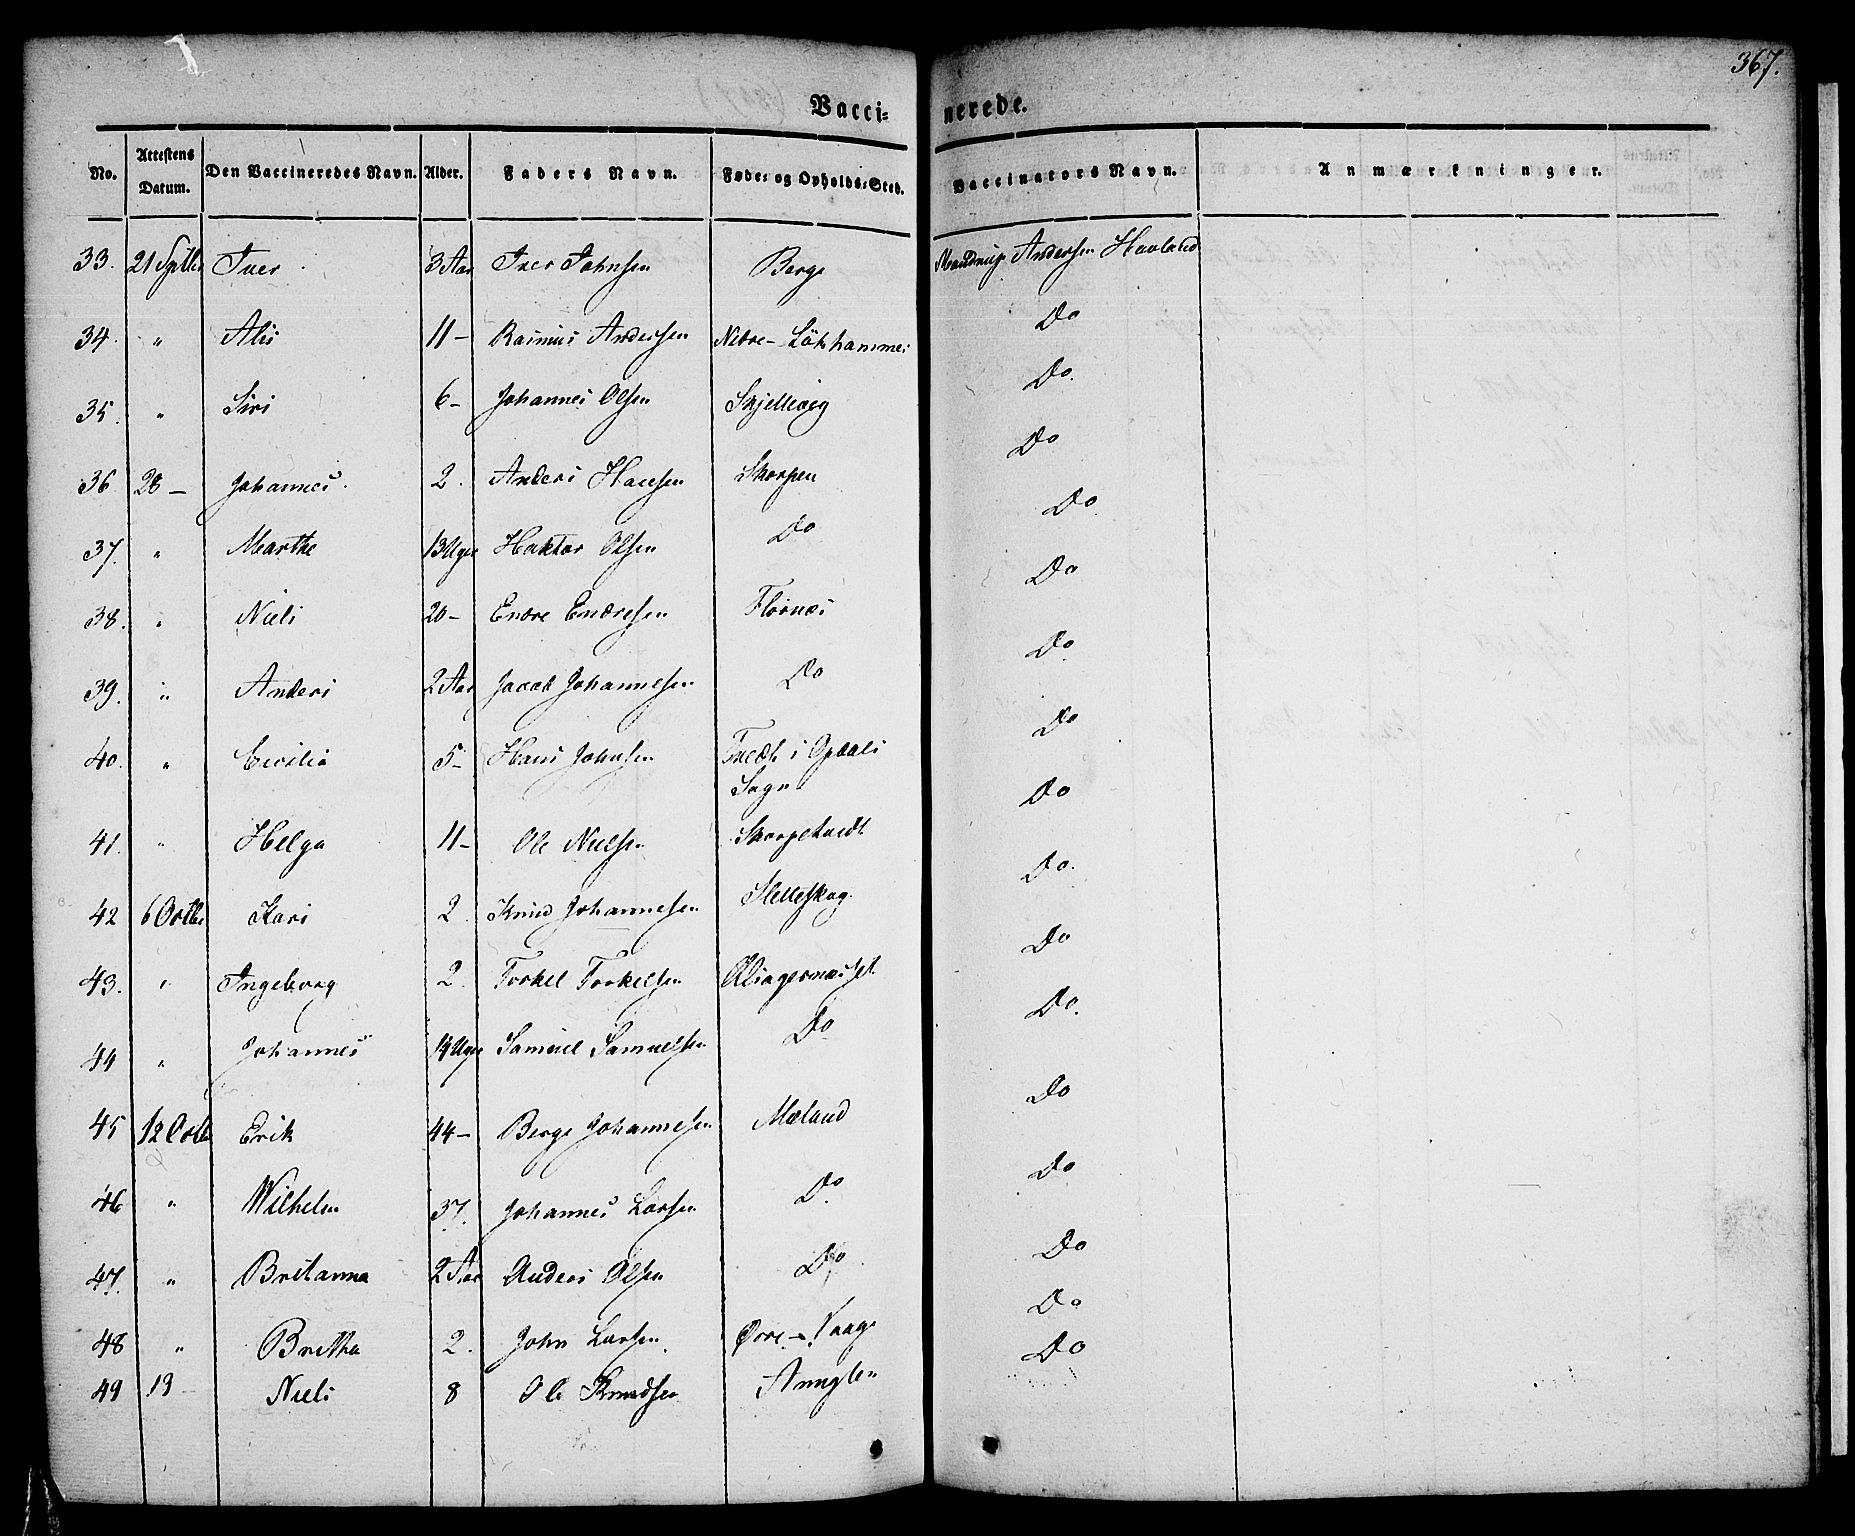 367.
Vaccinerede.
No. Attestens Datum. Den Vaccineredes Navn. Alder. Faders Navn. Føde- og Opholds-Sted. Vaccinators Navn. Anmærkninger.
33. 21 Septbr Iver 3 Aar Iver Johnsen Berge Mandrup Andersen Havland
34. " Alis 11 - Rasmus Andersen Nedre - Lökhammer Do
35. " Siri 6 - Johannes Olsen Skjellevig Do.
36 28 - Johannes. 2. Anders Hansen Skorpen Do
37. " Marthe 13 Uger Haktor Olsen Do Do.
38. " Niels 20 - Endre Endresen Flornæs Do
39. " Anders 2 Aar Jacob Johannesen Do Do.
40. " Cecilia 5 - Hans Johnsen Tvedt i Opdals Sogn Do
41. " Helga 11 - Ole Nielsen Skorpetvedt Do
42 6 Octbr Kari 2. Knud Johannesen Sletteskog. Do.
43. " Ingeborg 2. Torkel Torkelsen Do
44 " Johannes 14 Uger Samuel Samuelsen Do Do.
45 12 Octbr Erik 44 - Berge Johannesen Mæland Do
46 " Wilhelm 37. Johannes Larsen Do. Do
47. " Britanna 2 Aar Anders Olsen Do. Do
48 " Britha 2. John Larsen Øvre - Vaage Do
49 19 - Niels 8 Ole Knudsen Do